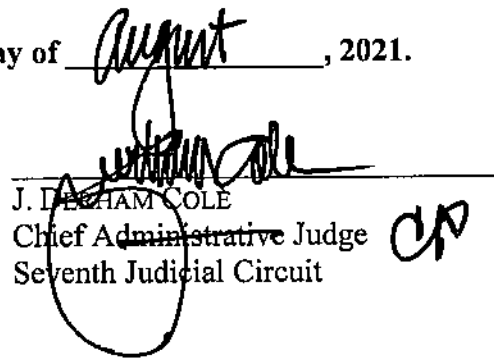 ay of August, 2021.
J. DERHAM COLE
Chief Administrative Judge
Seventh Judicial Circuit